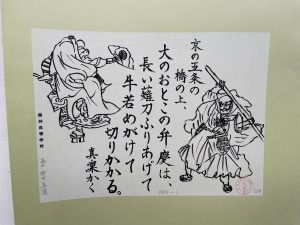 京の五条の
橋の上、
大のおとこの弁慶は、
長い薙刀ふりあげて
牛若めがけて
切りかかる。